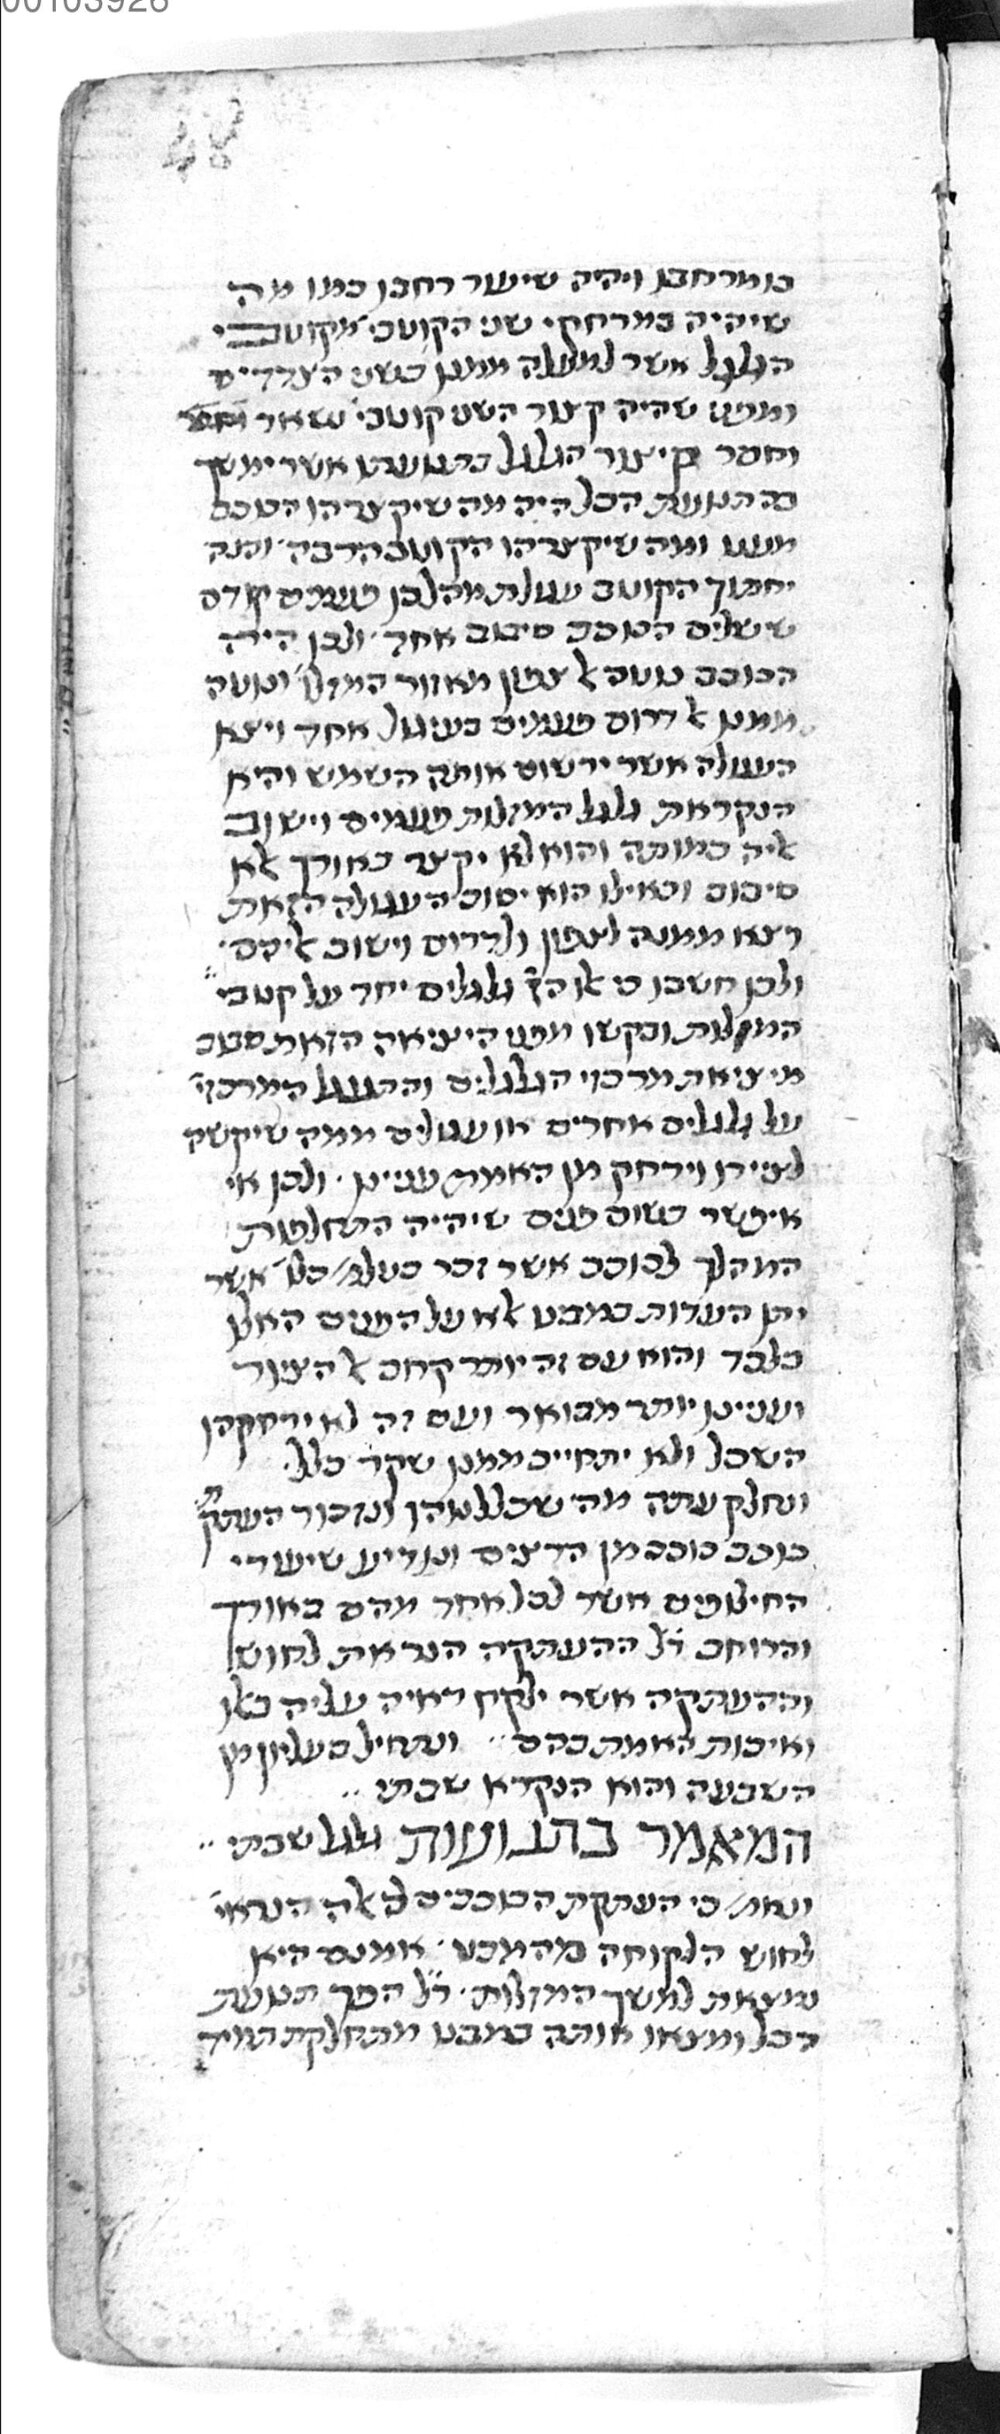 00103926
48
כו מרחבו ויהיה שיעור רחבו כמו מה
שיהיה במרחקי שני הקוטבי׳ מקוטבי
הגלגל אשר למעלה ממנו בשני הצדדים
ומפני שהיה קצור השני קוטבי׳ נשאר
וחסר קיצור הגלגל בתנועתו אשר ימשך
בה תנועת הכל היה מה שיקצרהו הכוכב
מעט ומה שיקצרהו הקוטב הרבה והנה
יחתוך הקוטב עגולת מהלכו פעמים קודם
שישלים הכוכב סיבוב אחד ולכן היה
הכוכב נוטה אל צפון מאזור המזלו׳ ונוטה
ממנו אל דרום פעמים בעיגול אחד ויצא
העגולה אשר ירשום אותה השמש והיא
הנקראת גלגל המזלות פעמים וישוב
אליה כמותה והוא לא יקצר באורך אלא
סיבוב וכאילו הוא יסוב העגולה הזאת
ויצא ממנה לצפון ולדרום וישוב אליהם
ולכן חשבו כי אלו הז׳ גלגלים יחד על קטבי
המזלות ובקשו מפני היציאה הזאת סבוב
מיציאת מרכזי הגלגלים וההגעגל המרכזי׳
על גלגלים אחרים או עגולים ממה שיקשה
לציירו וירחק מן האמת עניינו ולכן אי
איפשר בשום פנים שיהיה התחלפות
המהלך לכוכב אשר זכר בעל אשר
יתן העדות במבט לא על הפנים האלו
בלבד והוא עם זה יותר קרוב אל הציור
ועניינו יותר מבואר ועם זה לא ירחקהו
השכל ולא יתחייב ממנו שקר כלל
ונחלק עתה מה שכללנוהו ונזכור העתקת
כוכב כוכב מן הרצים ונודיע שיעורי
החילופים אשר לכל אחד מהם באורך
והרוחב ר״ל ההעתקה הנראת לחוש
וההעתקה אשר ילקח ראיה עליה כאלו
ואיכות האמת בהם ונתחיל בעליון מן
השבעה והוא הנקרא שבתי
המאמר בתנועות גלגל שבתי
ונאמ׳ כי העתקת הכוכבים האלה הנראי׳
לחוש הלקוחה מהמבט אמנם היא
נמצאת למשך המזלות ר״ל הפך תנועת
הכל ומצאו אותה במבט מתחלקת תמיד